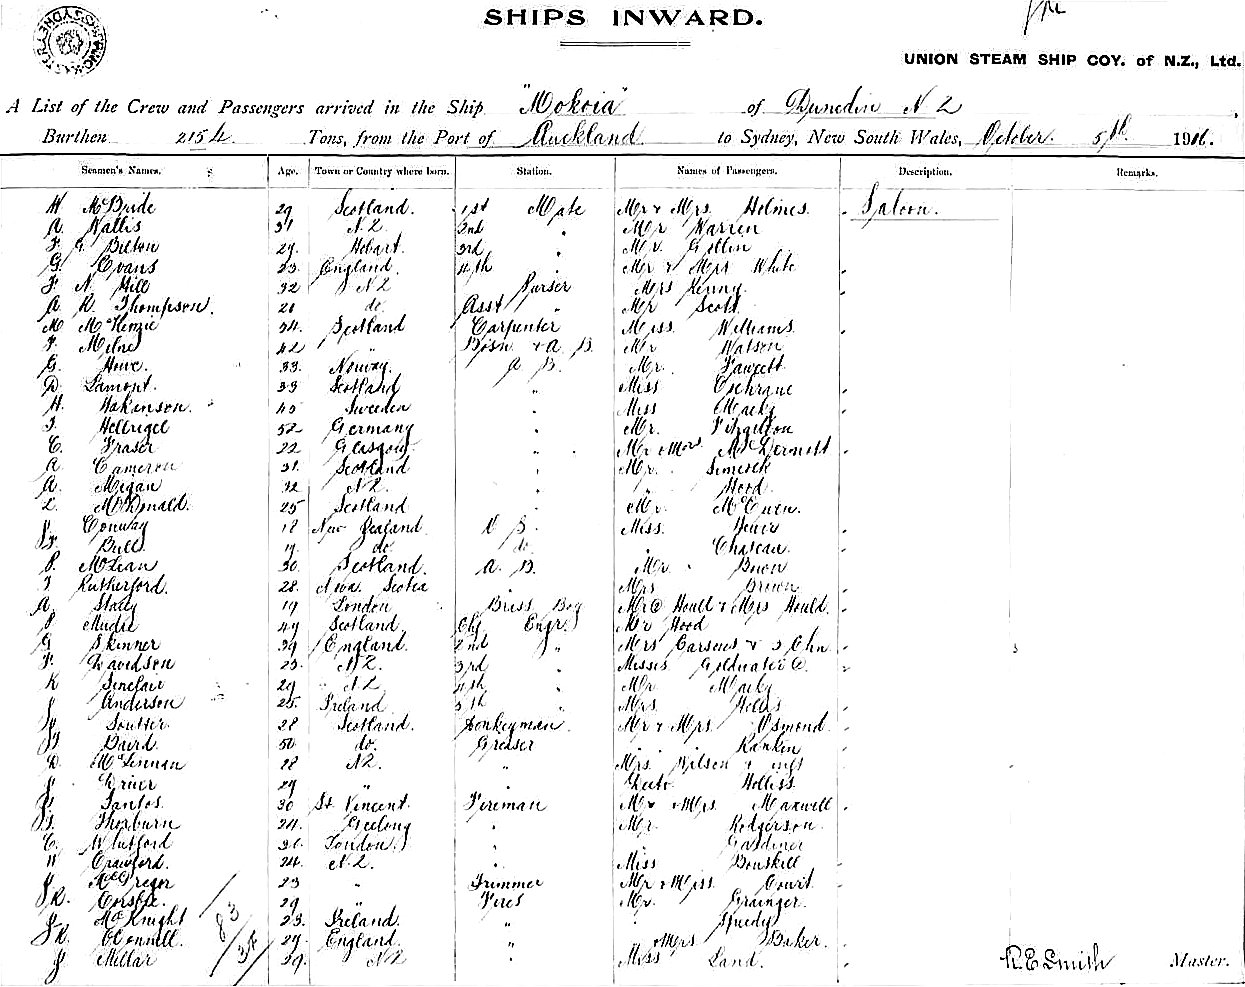 SHIPS INWARD.
UNION STEAM SHIP COY. of N.Z., Ltd.
A List of the Crew and Passengers arrived in the Ship "Mokoia" of Dunedin N Z
Burthen 2154 Tons, from the Port of Auckland to Sydney, New South Wales, October 5th 1916.
Seamen's Names. Age. Town or Country where born. Station. Names of Passengers. Description. Remarks.
H McBride 29 Scotland. 1st Mate Mr & Mrs Holmes. Saloon.
A. Wallis 31 N.Z. 2nd " Mr Warren
F. G. Bilton 29. Hobart. 3rd " Mr.
G. Evans 23 England. 4th " Mr & Mrs White
F N. Gill 32 N Z Purser Mrs Kenny.
A R. Thompson. 21 do. Asst " Mr Scott
M McKenzie 34. Scotland Carpenter Miss Williams.
F. Milne 42 " Bosn & A B. Mr Watson
G. Howe. 33. Norway. A B. Mr. Fawcett.
D. Lamont. 33 Scotland " Miss Cochrane
H. Hakinson. 45 Sweden " Miss Macky
J. 52 Germany " Mr.
C. Fraser 22 Glasgow. " Mr & Mrs McDermott
A Cameron 31. Scotland " Mr.
A. Megan 32 N Z. " " Hood.
L. McDonald. 25 Scotland " Mr. McEwen.
J. Conway 18 New Zealand. O S. Miss.
Bull. 19. do do. " Chateau.
McLean 30. Scotland. A. B. Mr.
J Rutherford. 28. Nova Scotia Mrs Brown
A. 19 London Boy
Mudie 49 Scotland. Chf Engr. Mr Hood
G Skinner 39 England. 2nd " Mrs
F. Davidson 23. N Z. 3rd " Misses
K Sinclair 29 " N Z 4th " Mr Macky
J Anderson 25. Ireland. 5th " Mrs.
J. Soutter 28 Scotland. Donkeyman. Mr & Mrs. Osmond.
Baird. 50 do. Greaser " " Rankin
D McLennan 28 NZ. " Mrs. Wilson & inft
J Driver 29 " Holliss.
J. Santos. 30 St Vincent. Fireman Mr & Mrs. Maxwell
Thorburn 24. Geelong " Mr. Rodgerson.
C. Whitford London. " " Gardiner
W Crawford. 24. N Z. " Miss Bouskill
J McGregor 23 " Trimmer Mr & Miss. Court.
J R. 29 " Fires Mr. Grainger.
McKnight 23. Ireland. " "
J R. O'Connell. 29. England. " Mrs Baker.
J Millar 29. N Z " Miss Land.
83
34
R E Smith Master.